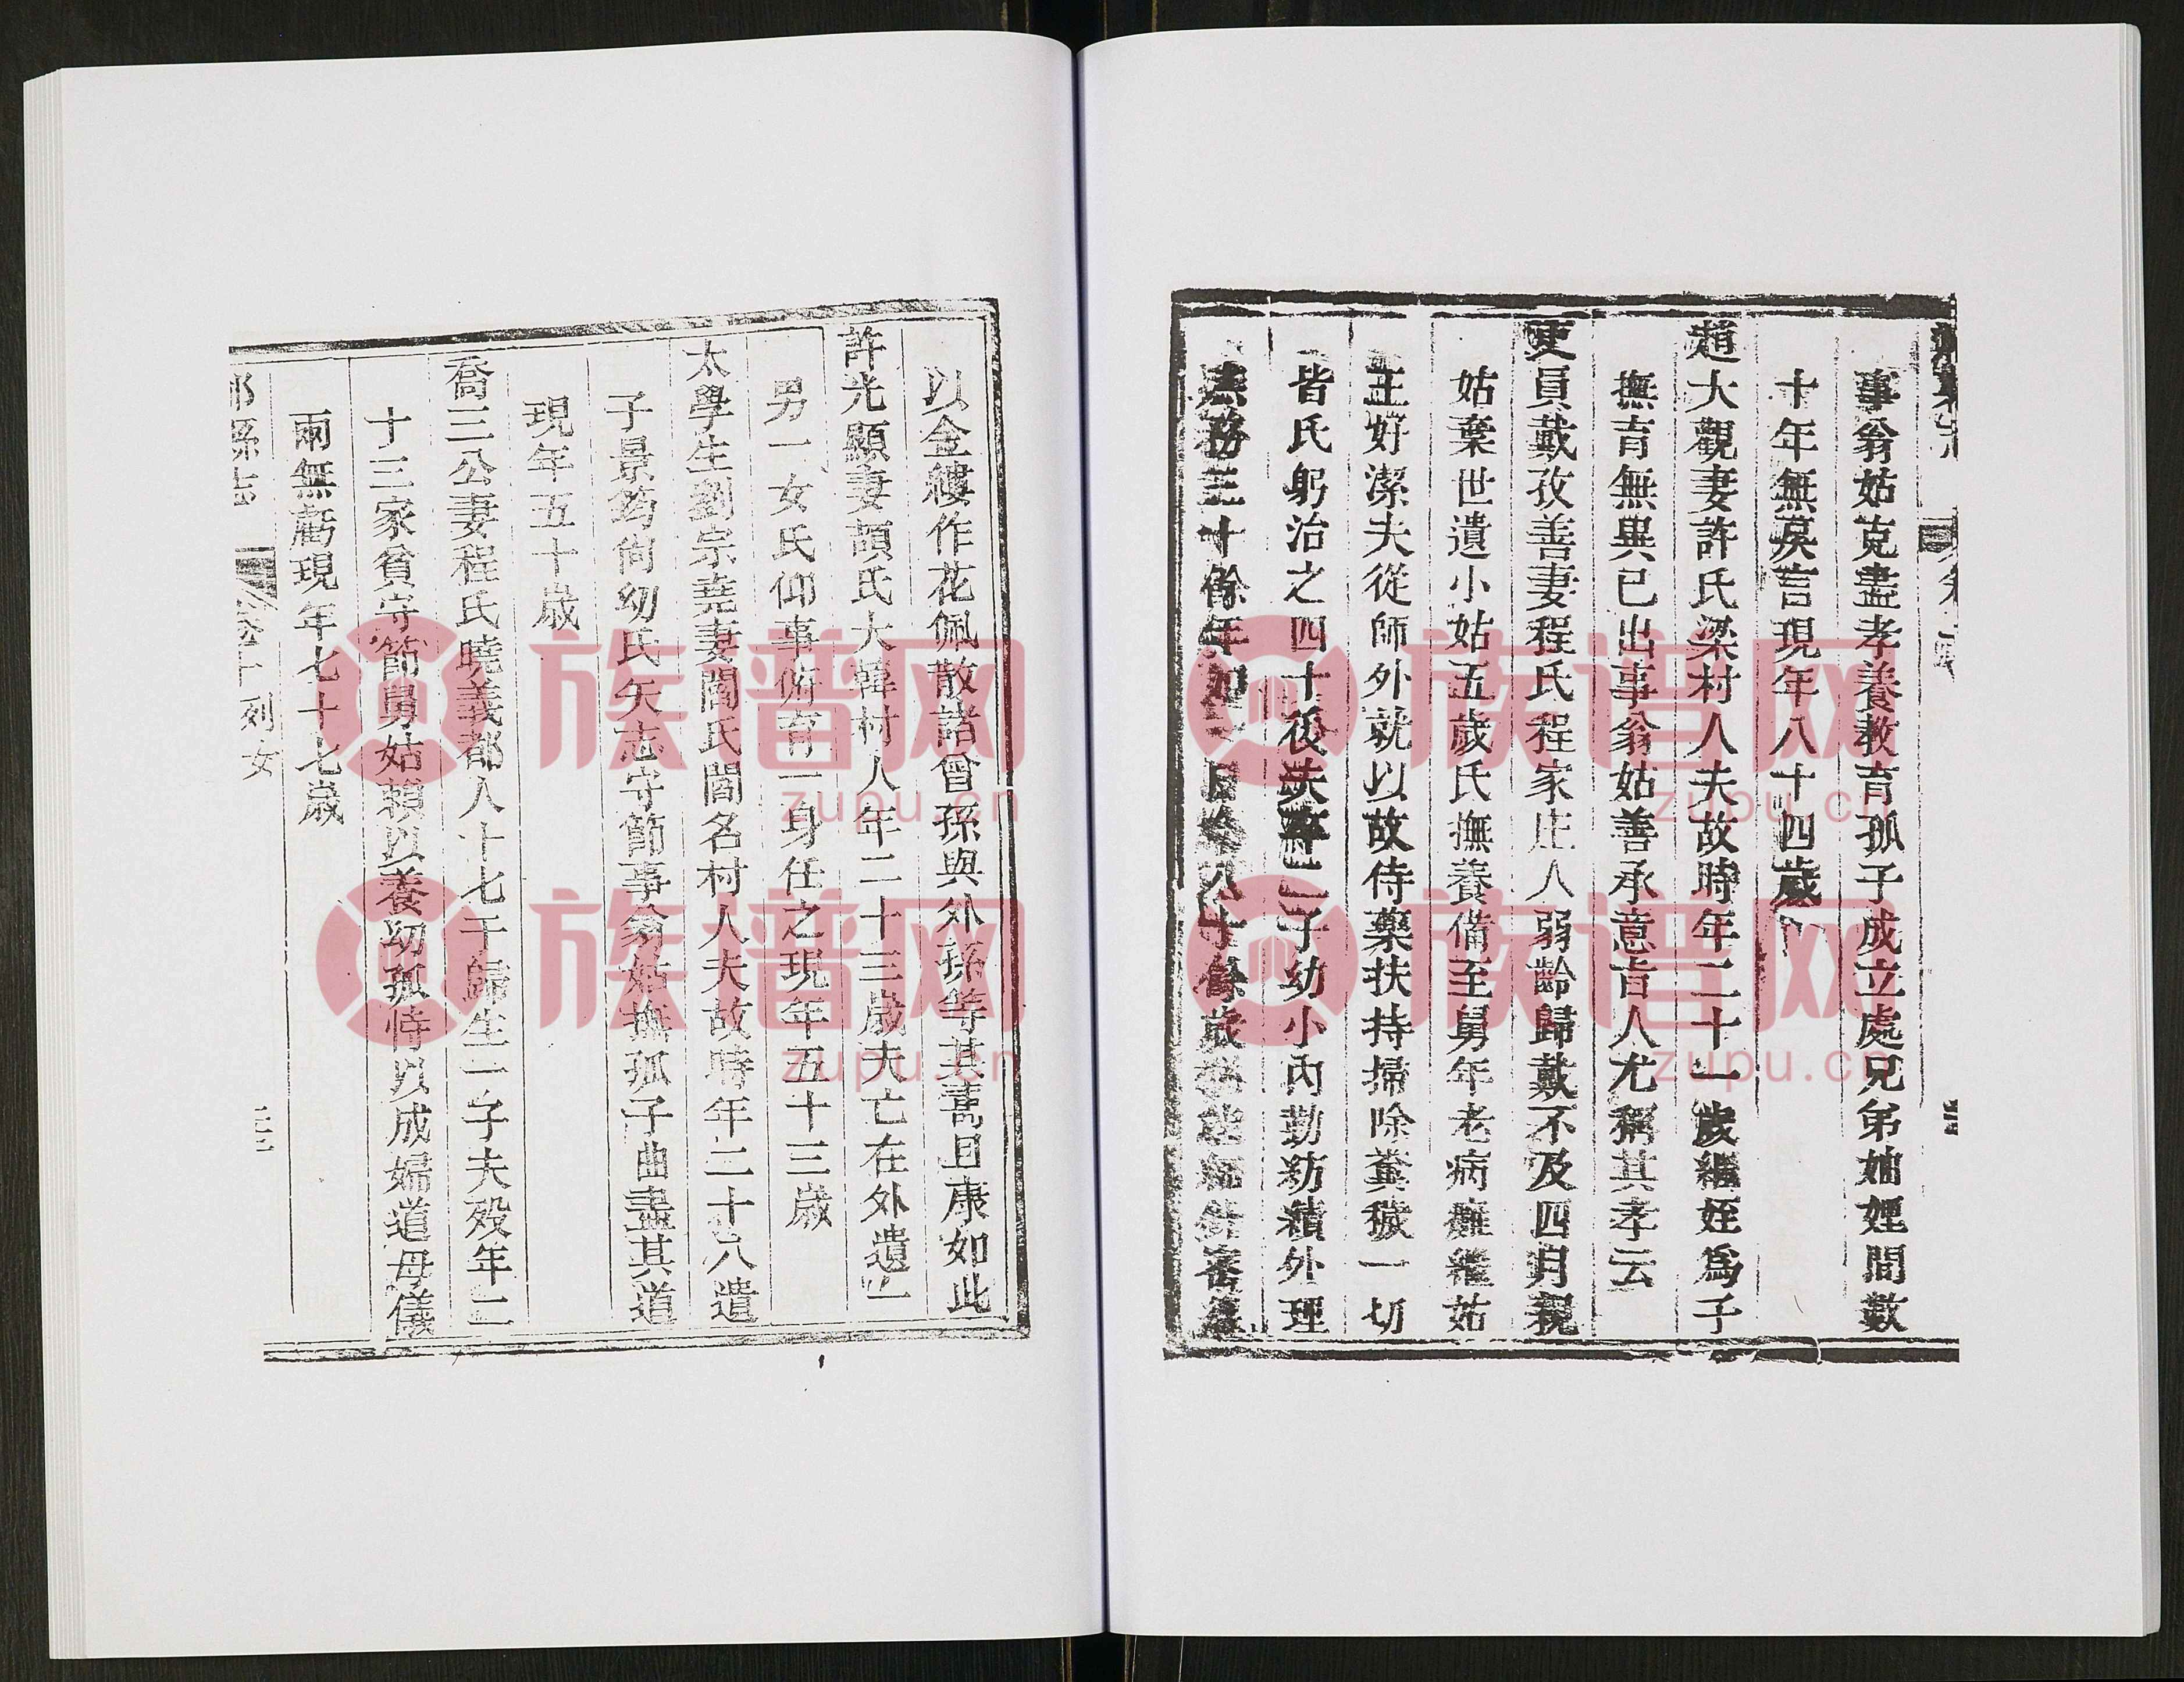 事翁姑克盡孝養教育孤子成立處兄弟妯娌間數
十年無莫言現年八十四歲
趙大觀妻許氏梁村人夫故時年二十一歲繼姪爲子
撫育無異已出事翁姑善承意㫖人尤稱其孝云
吏員戴孜善妻程氏程家庄人弱齡歸戴不及四月親
姑棄世遺小姑五歲氏撫養備至舅年老病癱繼姑
王好潔夫從師外就以故侍藥扶持掃除糞穢一切
皆氏躬治之四十後夫卒二子幼小內勤紡績外理
務三十餘年如一日八十餘歲
以金縷作花佩散諸曾孫與外孫等其壽且康如此
許光顯妻頡氏大韓村人年二十三歲夫亡在外遺一
男一女氏仰事俯育一身任之現年五十三歲
太學生劉宗堯妻閻氏閻名村人夫故時年二十八遺
子景筠尙幼氏矢志守節事翁姑撫孤子曲盡其道
現年五十歲
喬三公妻程氏曉義都人十七于歸生一子夫殁年二
十三家貧守節舅姑賴以養幼孤恃以成婦道母儀
兩無虧現年七十七歲
縣志 卷十列女
族譜网
zupu.cn
族譜网
zupu.cn
族谱网
zupu.cn
族谱网
zupu.cn